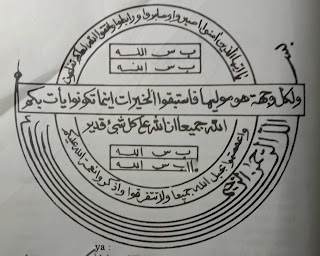 يا ايها الذين آمنوا اصبروا وصابروا ورابطوا واتقوا الله لعلكم تفلحون
ب س الله
ب س الله
ولكل وجهة هو موليها فاستبقوا الخيرات اينما تكونوا يأت بكم
الله جميعا ان الله على كل شئ قدير
ب س الله
ااا ب س الله
واعتصموا بحبل الله جميعا ولا تفرقوا واذكروا نعمة الله عليكم
الله الرحمن
ya :